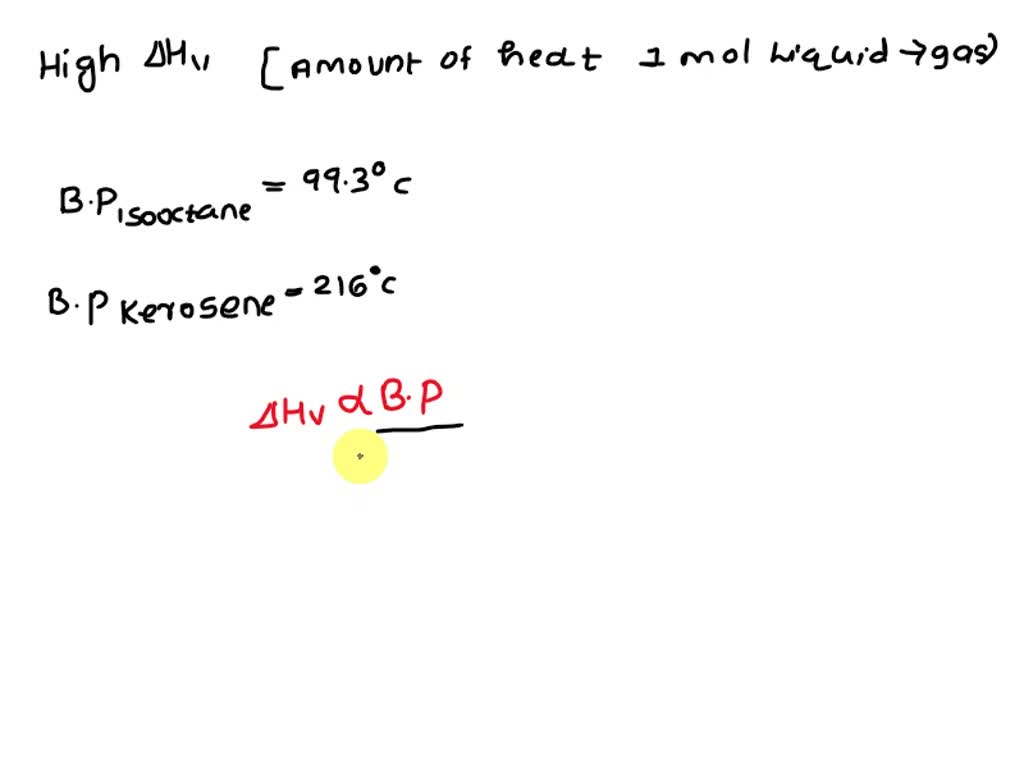 High ΔHv [Amount of heat 1 mol Liquid → gas)
B.P isooctane = 99.3° c
B.P Kerosene = 216°c
ΔHv α B.P